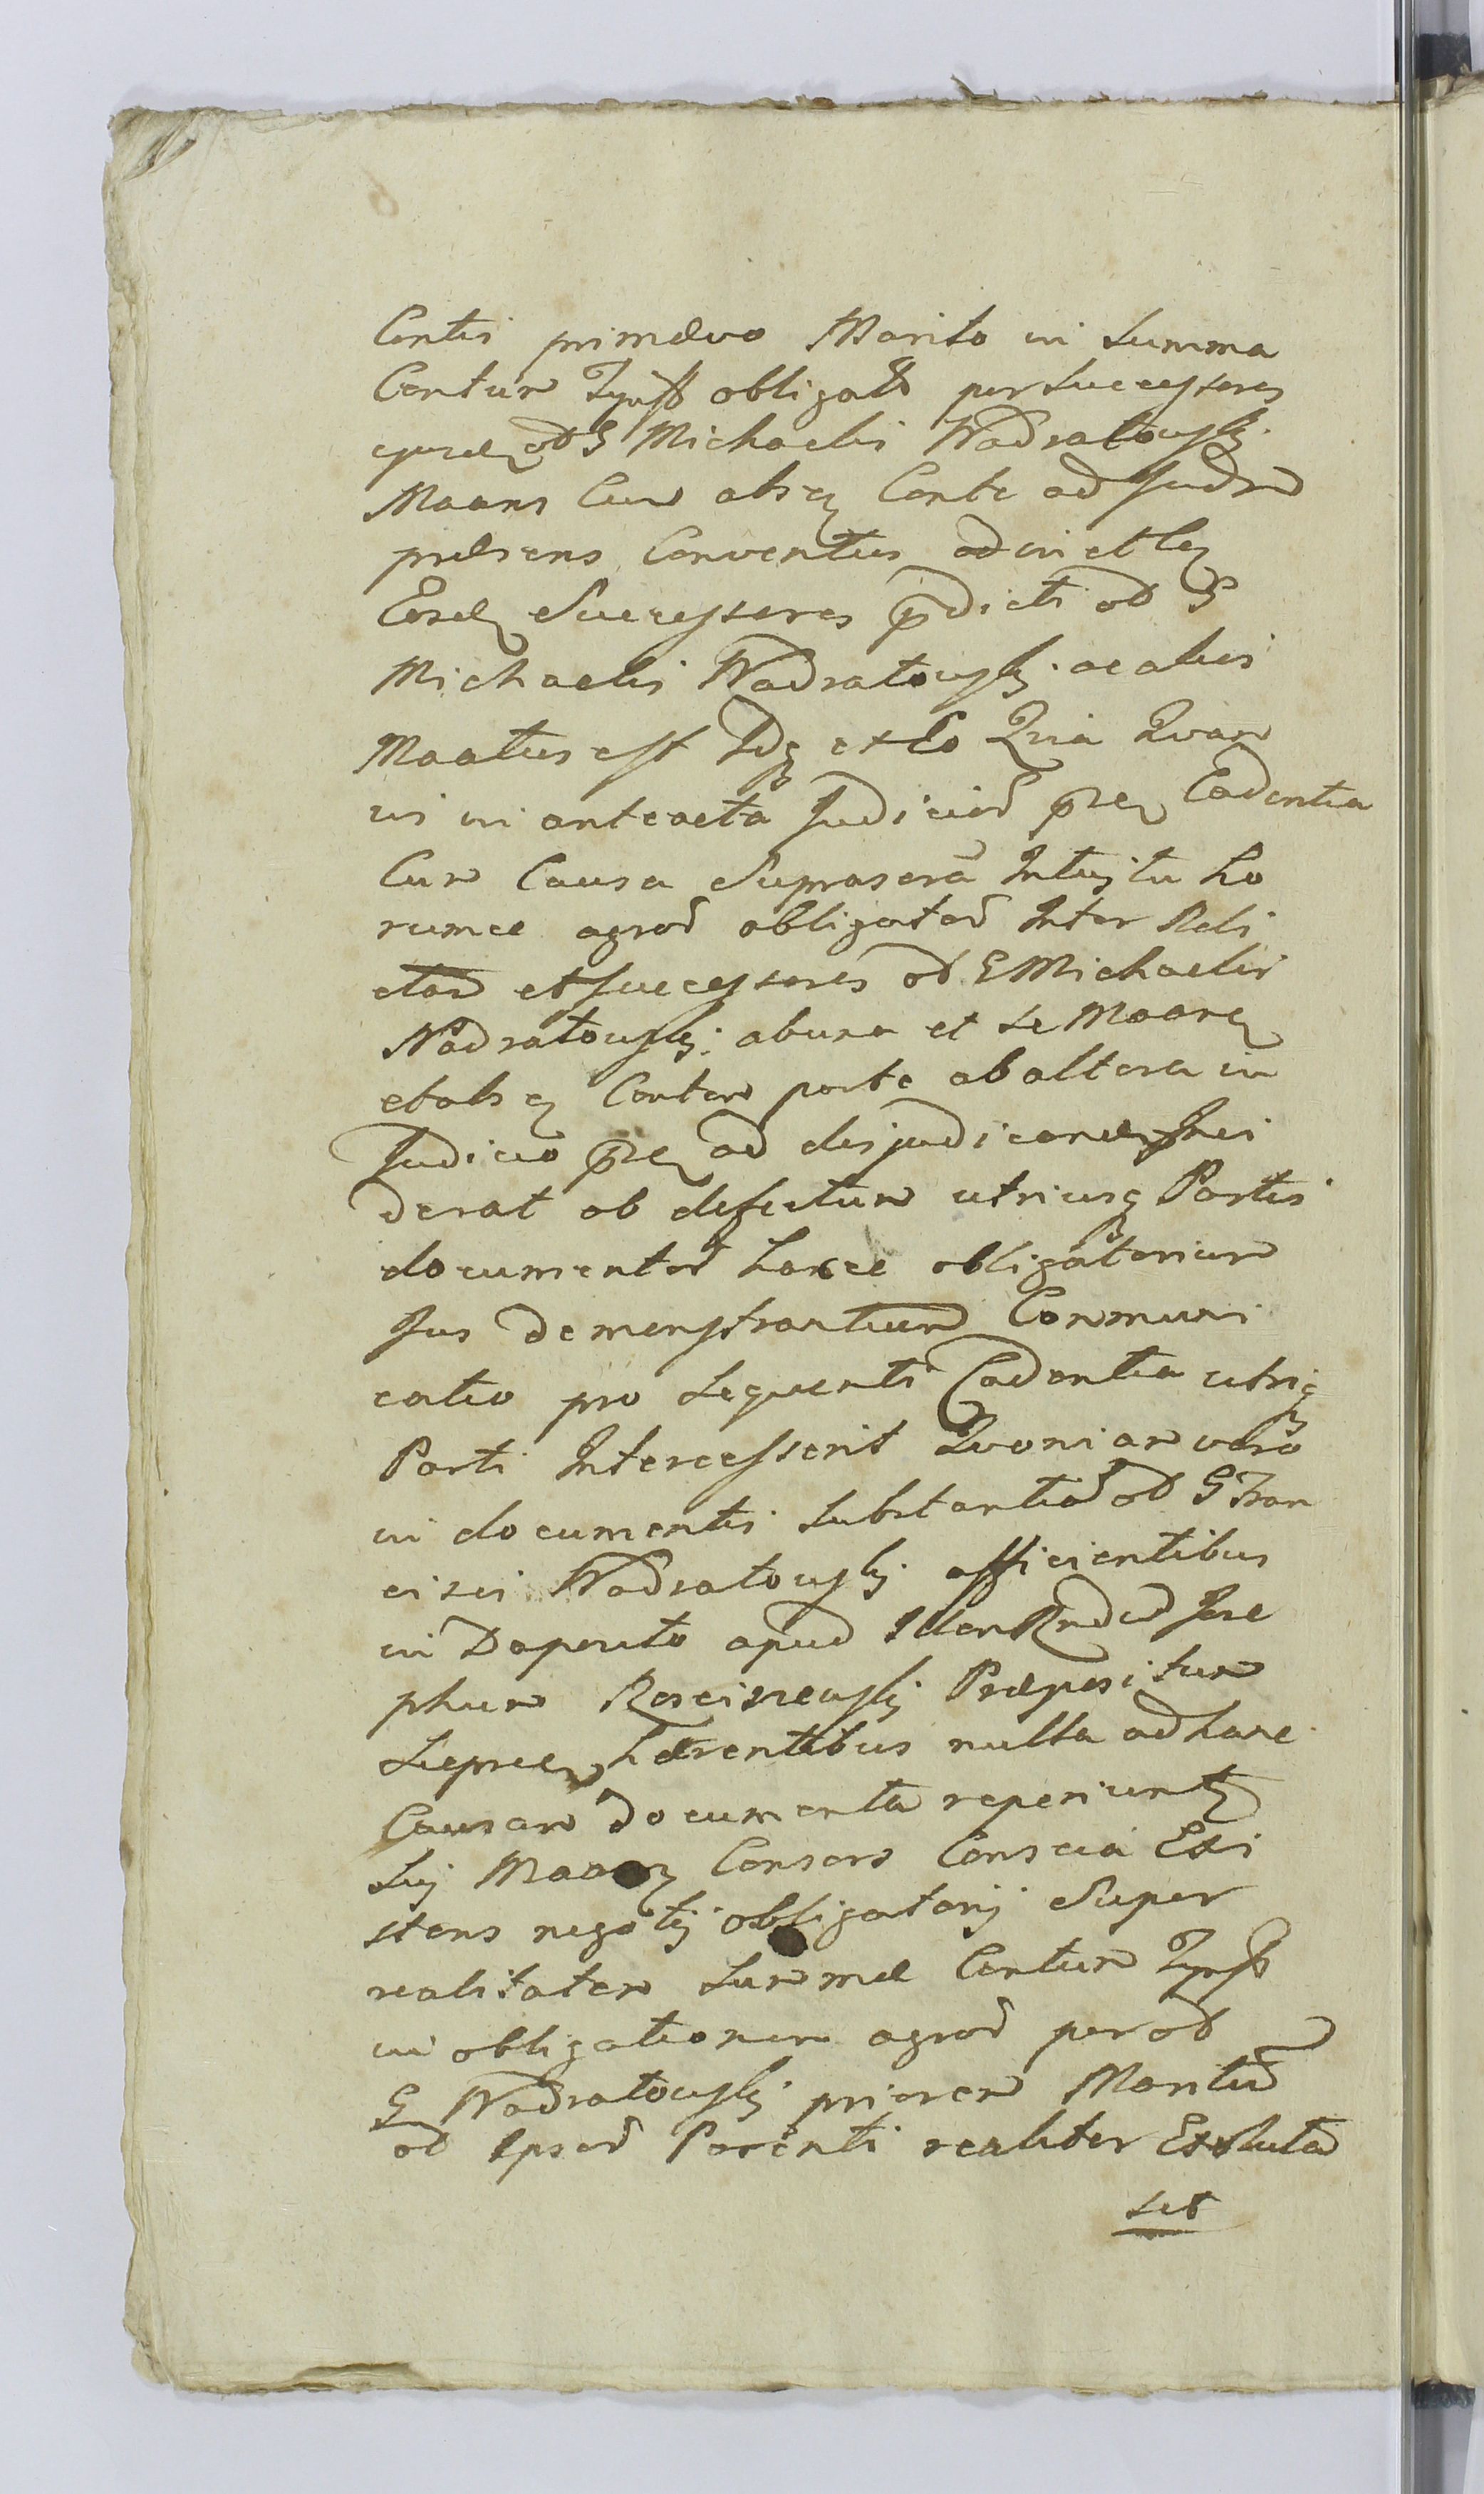 Contis primævo Marito in Summa
Centum Tynff obligat per Successores
ejusd od G Michaelis Wadratowsky
Maans Cum absq Conte ad Judm
præsens Conventus
Successores p̄dicti od G
Michaelis Wadratowsky ac alias
Maatus est Idq ex Eo Quia Quam
vis in anteacta Judicior p̄sq Cadentia
Cum Causa Suprascra Intuitu ho
rumce agror obligator Inter Reli
ctam et Successores od G Michaelis
Wadratowsky ab una et se Maanq
et absq Contem parte ab altera in
Judicio p̄sq ad disjudicand Inci
derat ob defectum utriusq Partis
documentor hocce obligatorium
Jus demonstrantium Communi
catio pro Sequenti Cadentia utriq
Parti Intercesserit Quoniam vero
in documentis Substantiam od G Fran
cisci Wadratowsky afficientibus
in Deposito apud Illem Rndum Jose
phum Præpositum
hærentibus nulla ad hanc
Causam documenta reperiuntr
Consors Conscia Exi
stens negotij obligatorij Super
realitatem Summæ Centum Tynff
in obligationem agror per od
G Wadratowsky priorem Maritum
od Ipsor Parenti realiter Exoluta
sed